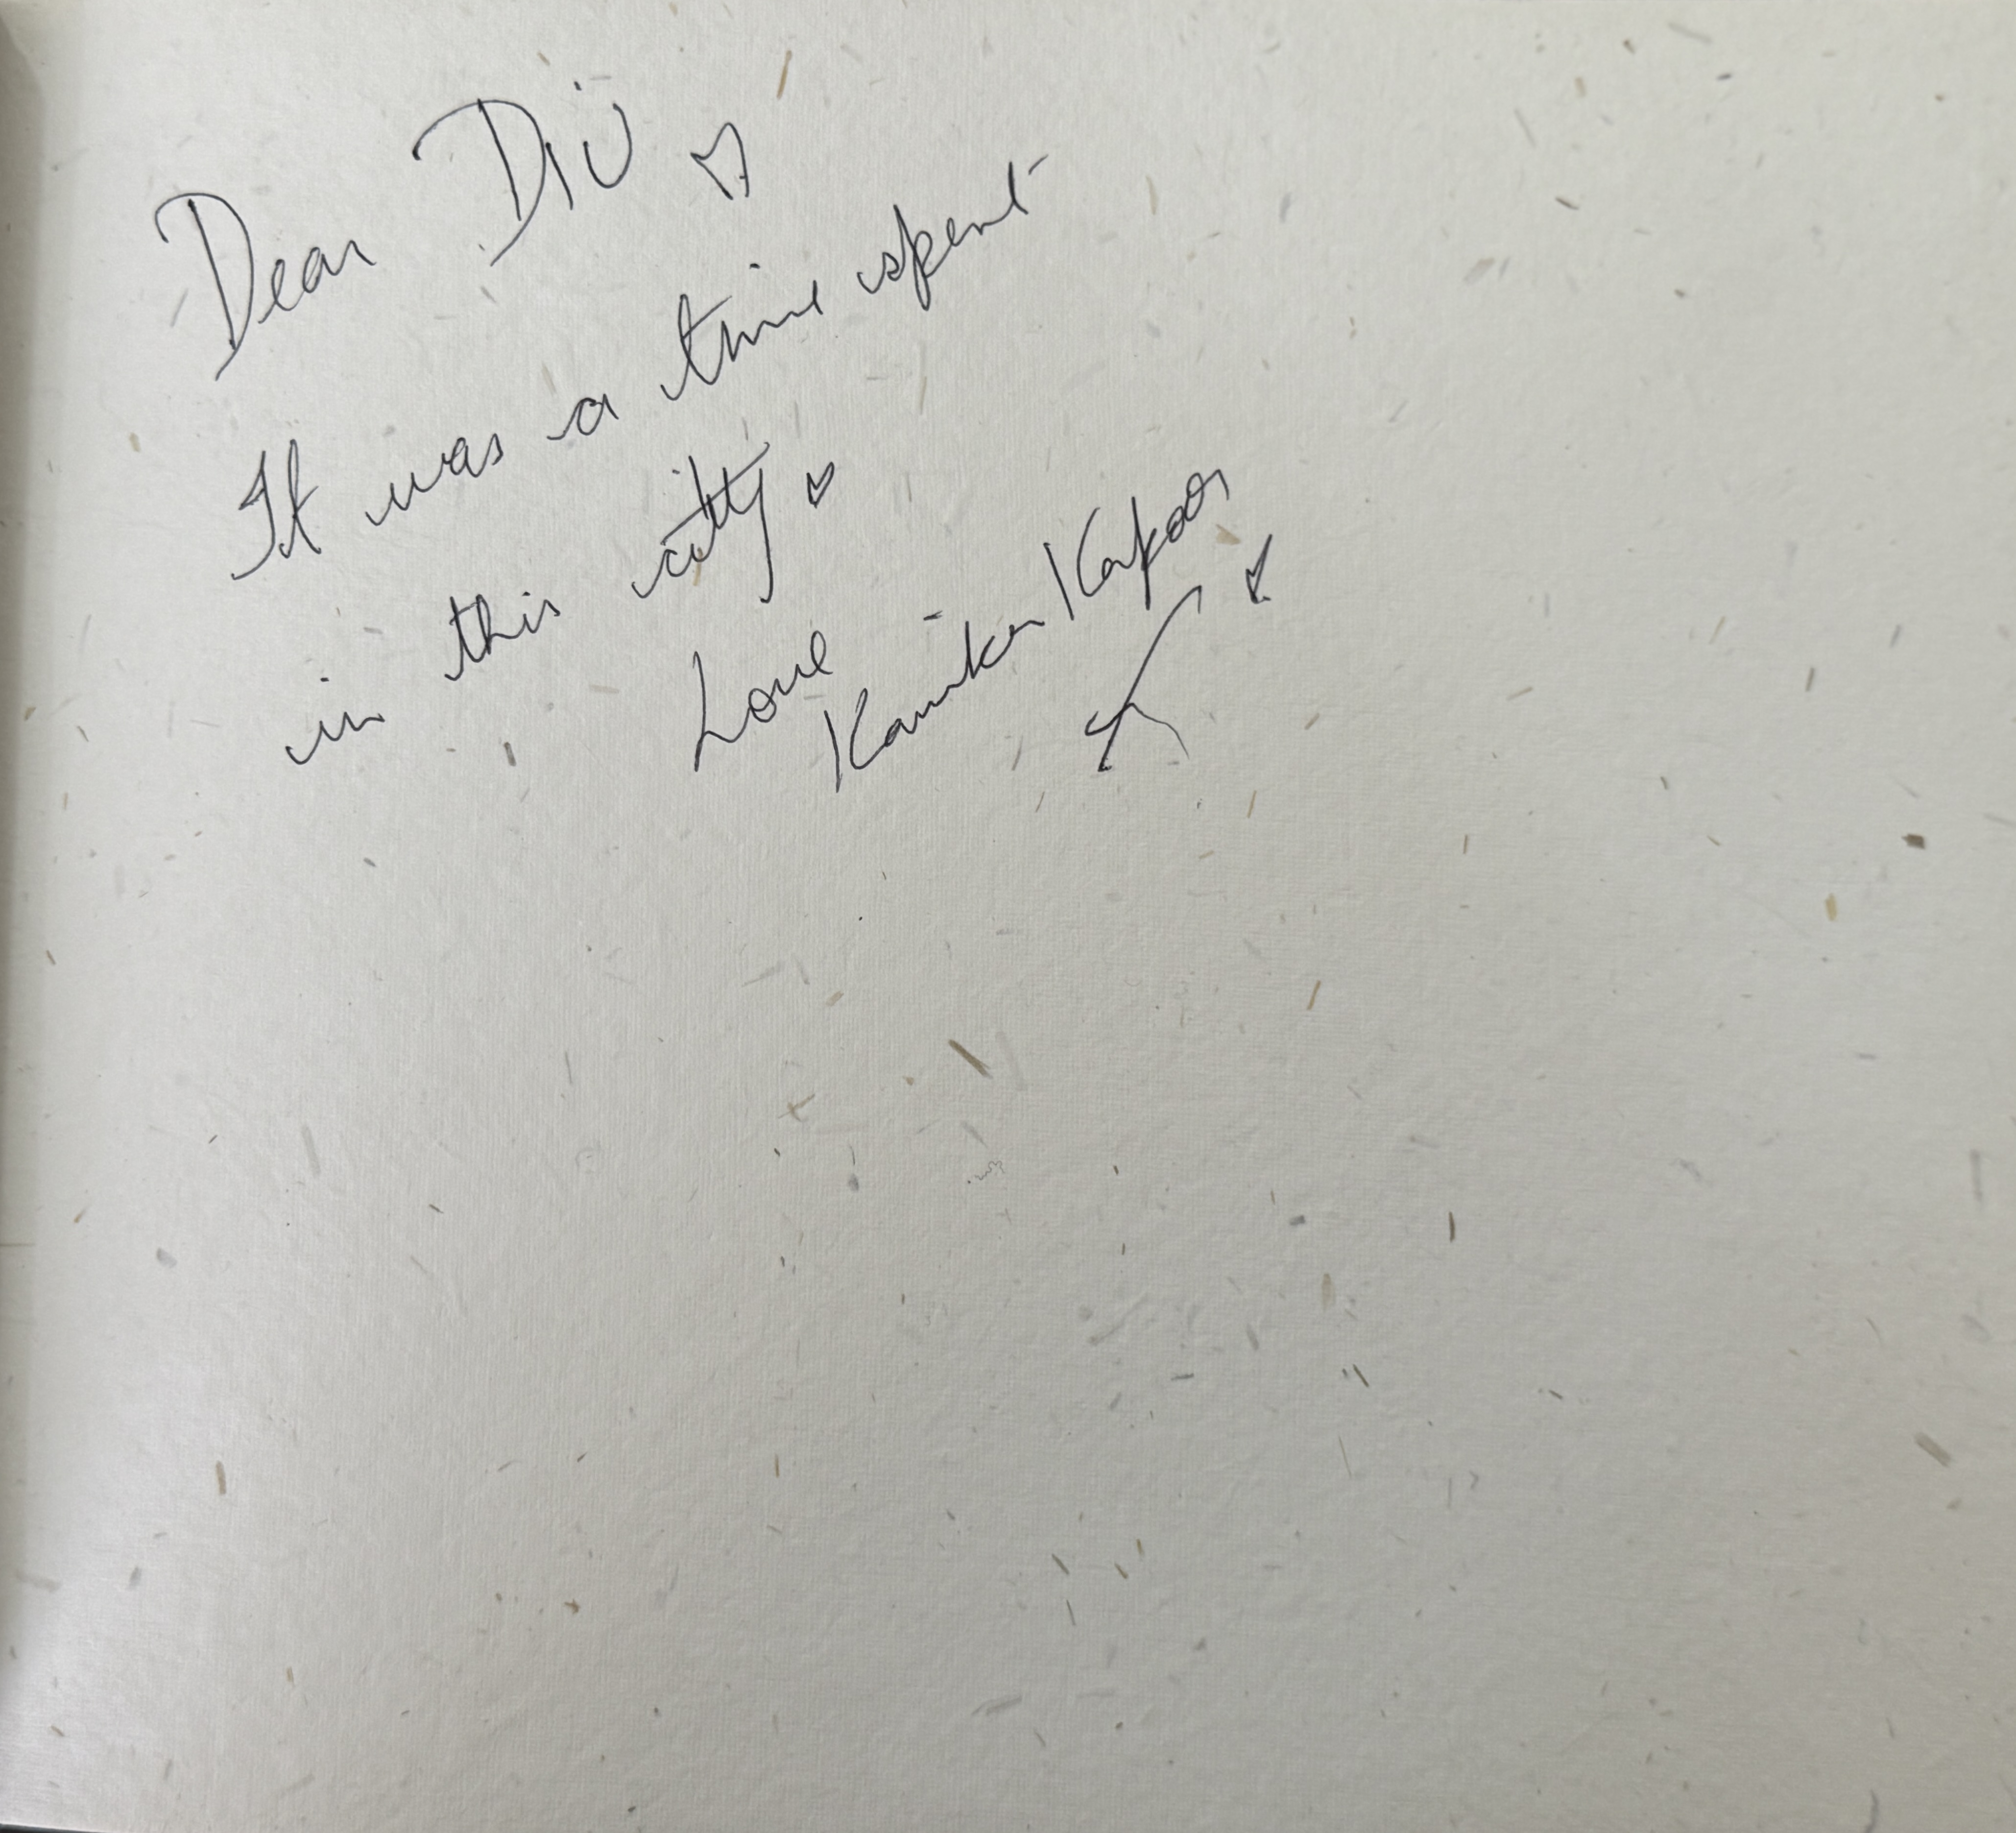 Dear Diu ♡
It was a time spent
in this citty ♡
Love
Kanika Kapoor